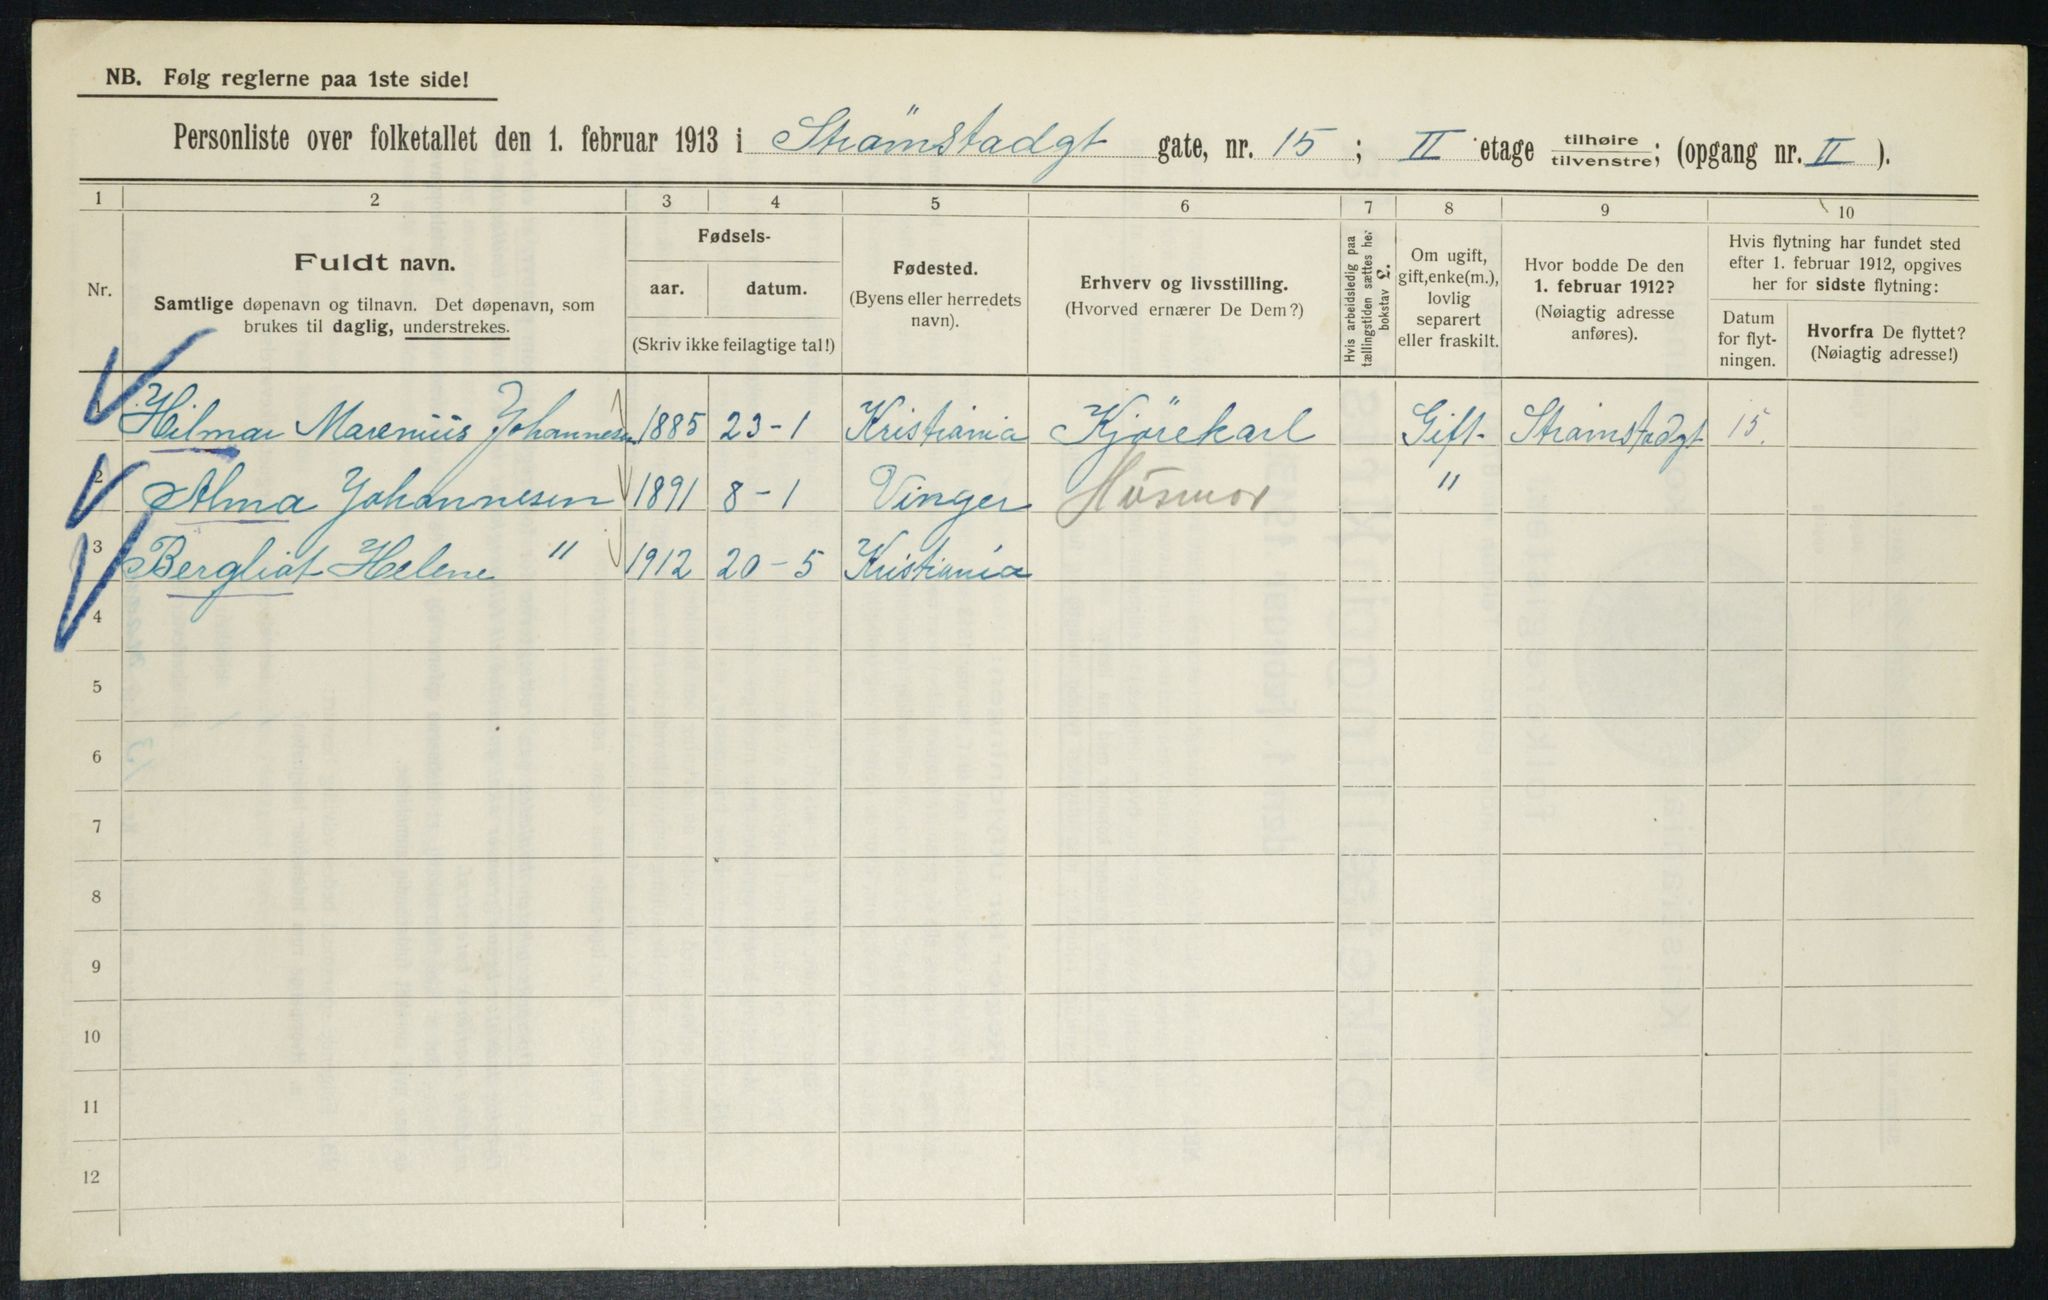 NB. Følg reglerne paa 1ste side!
Personliste over folketallet den 1. februar 1913 i Strömstadgt gate, nr. 15; II etage tilhøire tilvenstre; (opgang nr. II).
1 2 3 4 5 6 7 8 9 10
Nr.
Fuldt navn.
Samtlige døpenavn og tilnavn. Det døpenavn, som
brukes til daglig, understrekes.
Fødsels-
aar. datum.
(Skriv ikke feilagtige tal!)
Fødested.
(Byens eller herredets
navn).
Erhverv og livsstilling.
(Hvorved ernærer De Dem?)
Hvis arbeidsledig paa
tællingstiden sættes her
bokstav L.
Om ugift,
gift, enke(m.),
lovlig
separert
eller fraskilt.
Hvor bodde De den
1. februar 1912?
(Nøiagtig adresse
anføres).
Hvis flytning har fundet sted
efter 1. februar 1912, opgives
her for sidste flytning:
Datum
for flyt-
ningen.
Hvorfra De flyttet?
(Nøiagtig adresse!)
1 Hilmar Marenius Johannesen 1885 23-1 Kristiania Kjörekarl Gift Strömstadgt 15.
2 Alma Johannesen 1891 8-1 Vinger Husmor "
3 Bergliot Helene " 1912 20-5 Kristiania
4
5
6
7
8
9
10
11
12